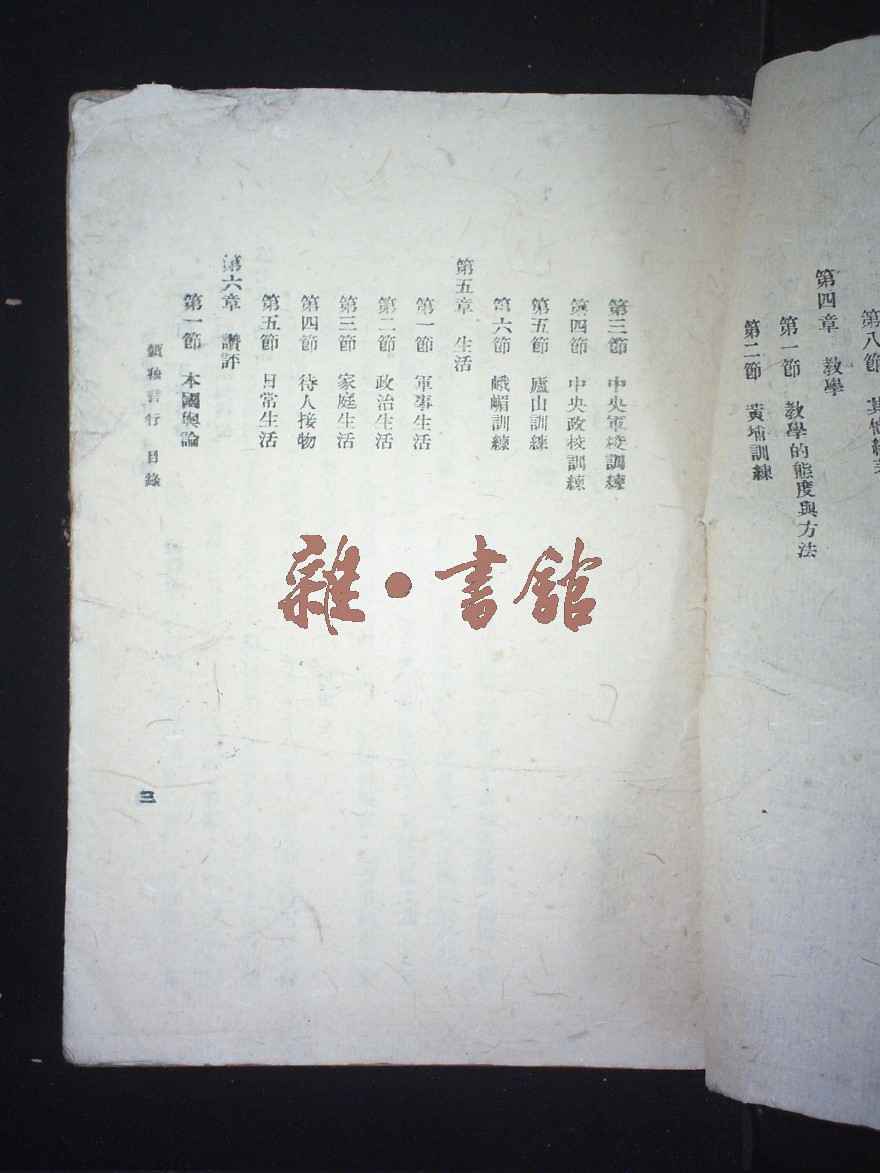 第八節
第四章　教學
第一節　教學的態度與方法
第二節　黃埔訓練
第三節　中央軍校訓練
第四節　中央政校訓練
第五節　廬山訓練
第六節　峨嵋訓練
第五章　生活
第一節　軍事生活
第二節　政治生活
第三節　家庭生活
第四節　待人接物
第五節　日常生活
第六章　讚評
第一節　本國輿論
領袖言行　目錄
三
雜·書館